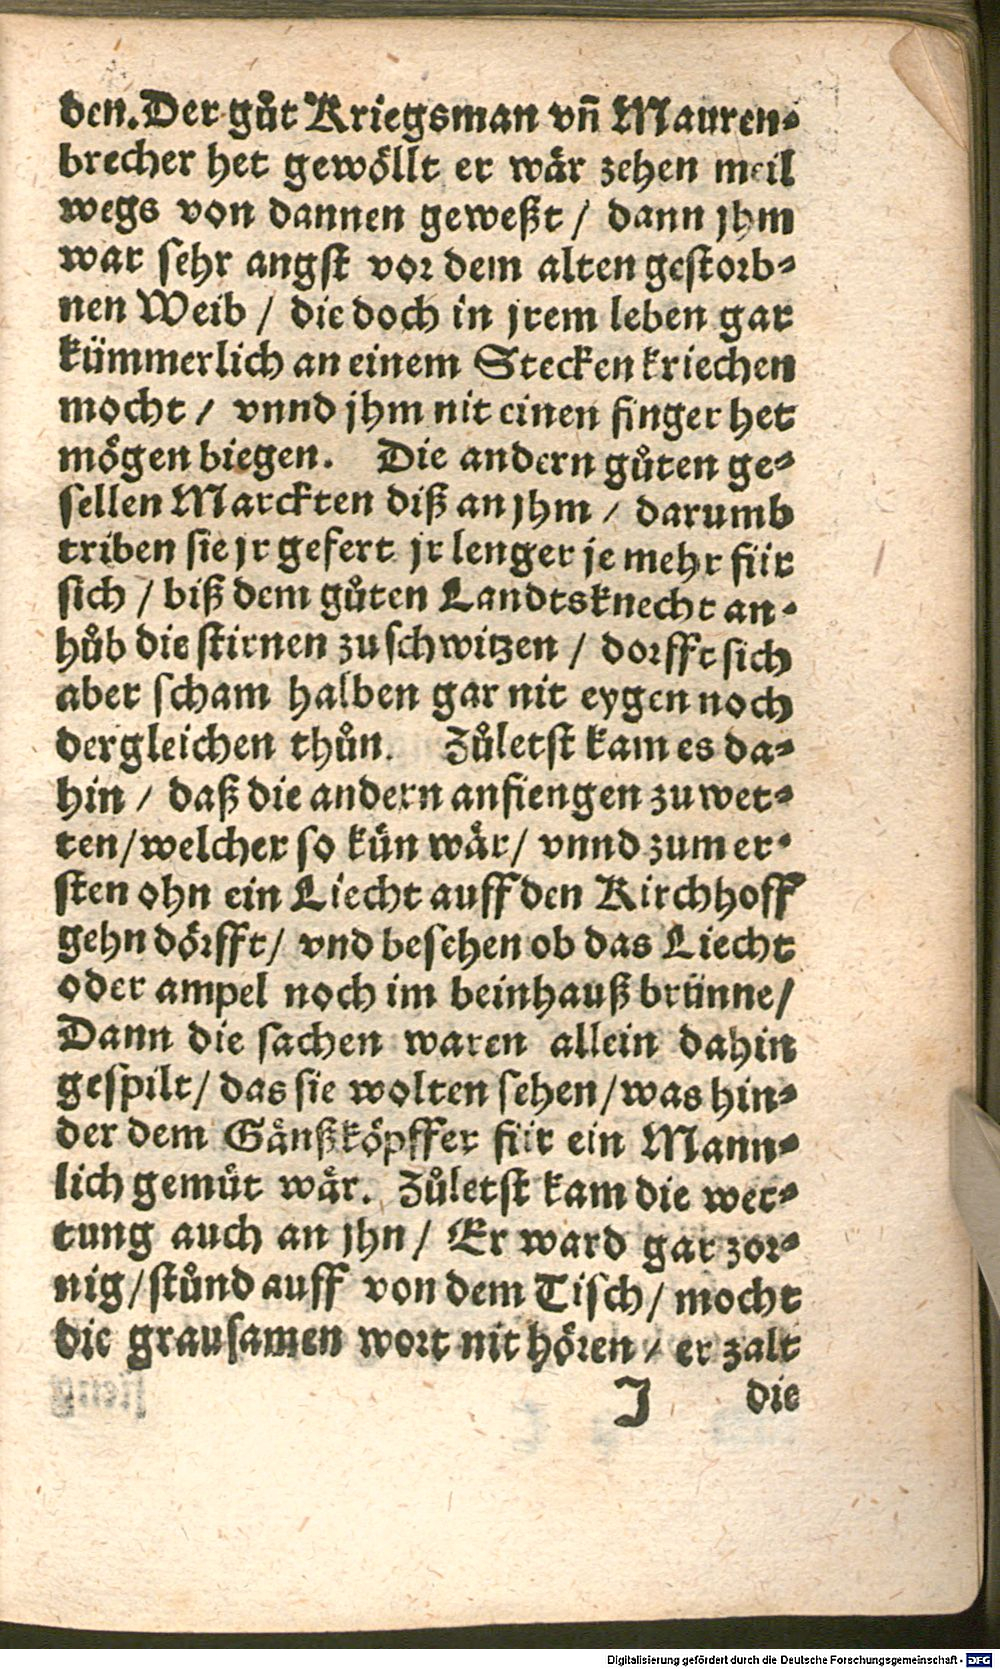 den. Der gůt Kriegsman vñ Mauren-
brecher het gewöllt er wär zehen meil
wegs von dannen geweßt / dann jhm
war sehr angst vor dem alten gestorb-
nen Weib / die doch in jrem leben gar
kümmerlich an einem Stecken kriechen
mocht / vnnd jhm nit einen finger het
mögen biegen. Die andern gůten ge-
sellen Marckten diß an jhm / darumb
triben sie jr gefert jr lenger je mehr für
sich / biß dem gůten Landtsknecht an-
hůb die stirnen zu schwitzen / dorfft sich
aber scham halben gar nit eygen noch
dergleichen thůn. Zůletst kam es da-
hin / daß die andern anfiengen zu wet-
ten / welcher so kün wär / vnnd zum er-
sten ohn ein Liecht auff den Kirchhoff
gehn dörfft / vnd besehen ob das Liecht
oder ampel noch im beinhauß brünne /
Dann die sachen waren allein dahin
gespilt / das sie wolten sehen / was hin-
der dem Gänßköpffer für ein Mann-
lich gemüt wär. Zůletst kam die wet-
tung auch an jhn / Er ward gar zor-
nig / stůnd auff von dem Tisch / mocht
die grausamen wort nit hören / er zalt
J die
Digitalisierung gefördert durch die Deutsche Forschungsgemeinschaft - DFG